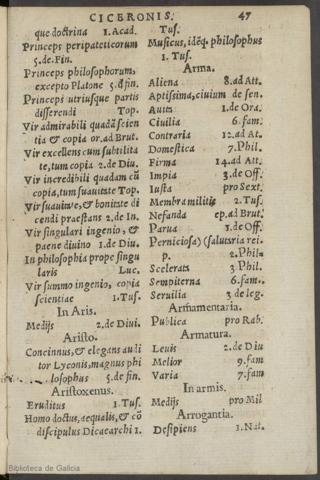 CICERONIS. 47
que doctrina 1. Acad.
Princeps peripateticorum
5. de. Fin.
Princeps philosophorum,
excepto Platone 5. d fin.
Princeps utriusque partis
disserendi Top.
Vir admirabili quadā scien
tia & copia or. ad Brut.
Vir excellens cum subtilita
te, tum copia 2. de Diu.
Vir incredibili quadam cū
copia, tum suauitate Top.
Vir suauitate, & bonitate di
cendi præstans 2. de In.
Vir singulari ingenio, &
paene diuino 1. de Diu.
In philosophia prope singu
laris Luc.
Vir summo ingenio, copia
scientiae 1. Tus.
In Aris.
Medijs 2. de Diui.
Aristo.
Concinnus, & elegans audi
tor Lyconis, magnus phi
losophus 5. de fin.
Aristoxenus.
Eruditus 1. Tus.
Homo doctus, aequalis, & cō
discipulus Dicaearchi 1.
Tus.
Musicus, idēq. philosophus
1. Tus.
Arma.
Aliena 8. ad Att.
Aptissima, ciuium de sen.
Auits 1. de Ora.
Ciuilia 6. fam.
Contraria 12. ad At.
Domestica 7. Phil.
Firma 14. ad Att.
Impia 3. de Off.
Iusta pro Sext.
Membra militis 2. Tus.
Nefanda ep. ad Brut.
Parua 1. de Off.
Perniciosa) (salutaria rei.
p. 2. Phil.
Scelerata 3. Phil.
Sempiterna 6. fam.
Seruilia 3. de leg.
Armamentaria.
Publica pro Rab.
Armatura.
Leuis 2. de Diu
Melior 9. fam
Varia 7. fam
In armis.
Medijs pro Mil
Arrogantia.
Desipiens 1. Nat.
Biblioteca de Galicia